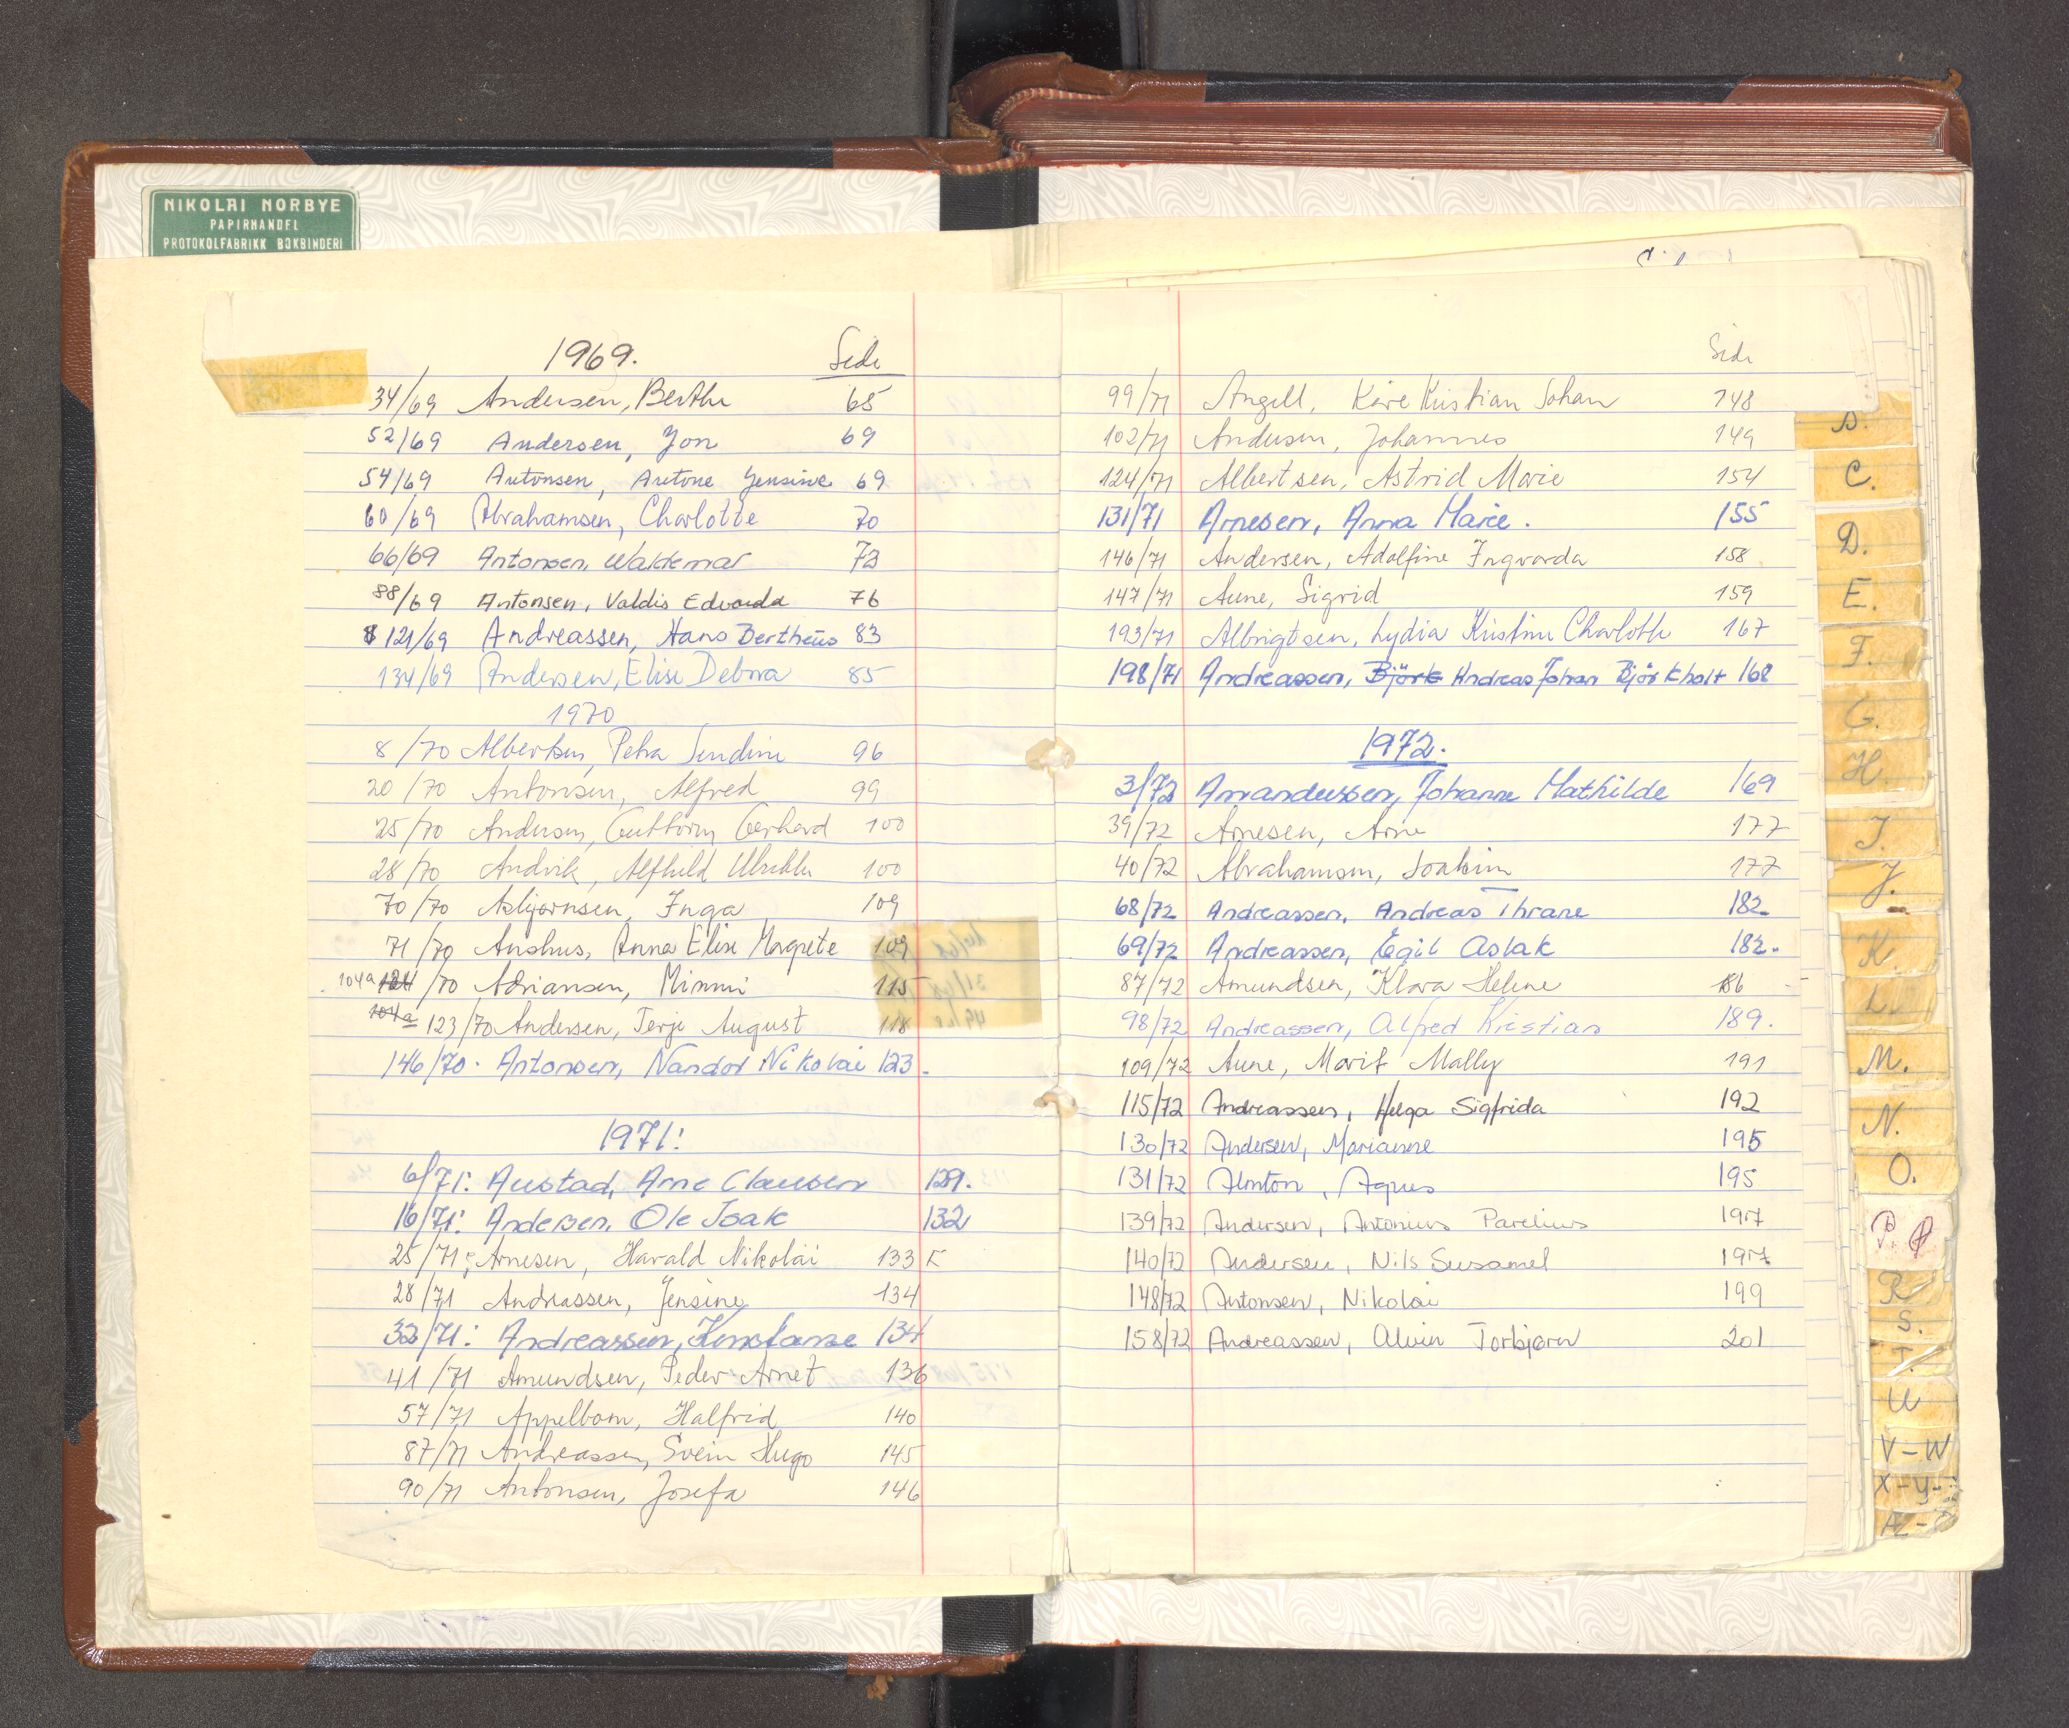 NIKOLAI NORBYE
PAPIRHANDEL
PROTOKOLFABRIKK BOKBINDERI
1969. Side
34/69 Andersen, Berthe 65
52/69 Andersen, Jon 69
54/69 Antonsen, Antone Jensine 69
60/69 Abrahamsen, Charlotte 70
66/69 Antonsen, Waldemar 73
88/69 Antonsen, Valdis Edvarda 76
121/69 Andreassen, Hans Bertheus 83
134/69 Andersen, Elise Debora 85
1970
8/70 Albertsen, Petra Sendine 96
20/70 Antonsen, Alfred 99
25/70 Andersen, Guttorm Gerhard 100
28/70 Andvik, Alfhild 100
70/70 Asbjørnsen, Inga 109
71/70 Anshus, Anna Elise Margrete 109
104a 124/70 Adriansen, Mimmi 115
104a 123/70 Andersen, Terje August 118
146/70. Antonsen, Nandor Nikolai 123.
1971:
6/71: Austad, Arne Clausen 129.
16/71: Andersen, Ole Isak 132
25/71: Arnesen, Harald Nikolai 133
28/71 Andreassen, Jensine 134
32/71: Andreassen, Konstanse 134
41/71 Amundsen, Peder Arnet 136
57/71 Appelbom, Halfrid 140
87/71 Andreassen, Svein Hugo 145
90/71 Antonsen, Josefa 146
Side
99/71 Angell, Kåre Kristian Johan 148
102/71 Andersen, Johannes 149
124/71 Albertsen, Astrid Marie 154
131/71 Arnesen, Anna Marie. 155
146/71 Andersen, Adolfine Ingvarda 158
147/71 Aune, Sigrid 159
193/71 Albrigtsen, Lydia Kristine Charlotte 167
198/71 Andreassen, Björk Andreas Johan Björkholt 168
1972.
3/72 Amandussen, Johanne Mathilde 169
39/72 Arnesen, Arne 177
40/72 Abrahamsen, Joakim 177
68/72 Andreassen, Andreas Thrane 182
69/72 Andreassen, Egil Aslak 182.
87/72 Amundsen, Klara Helene 186
98/72 Andreassen, Alfred Kristian 189.
109/72 Aune, Marit Mally 191
115/72 Andreassen, Helga Sigfrida 192
130/72 Andersen, Marianne 195
131/72 Almton, Agnes 195
139/72 Andersen, Antonius Parelius 197
140/72 Andersen, Nils Susamel 197
148/72 Antonsen, Nikolai 199
158/72 Andreassen, Alvin Torbjørn 201
B.
C.
D.
E.
F.
G.
H.
I.
J.
K.
L.
M.
N.
O.
P.
R
S.
T.
U
V-W
X-Y-
Æ-Ø